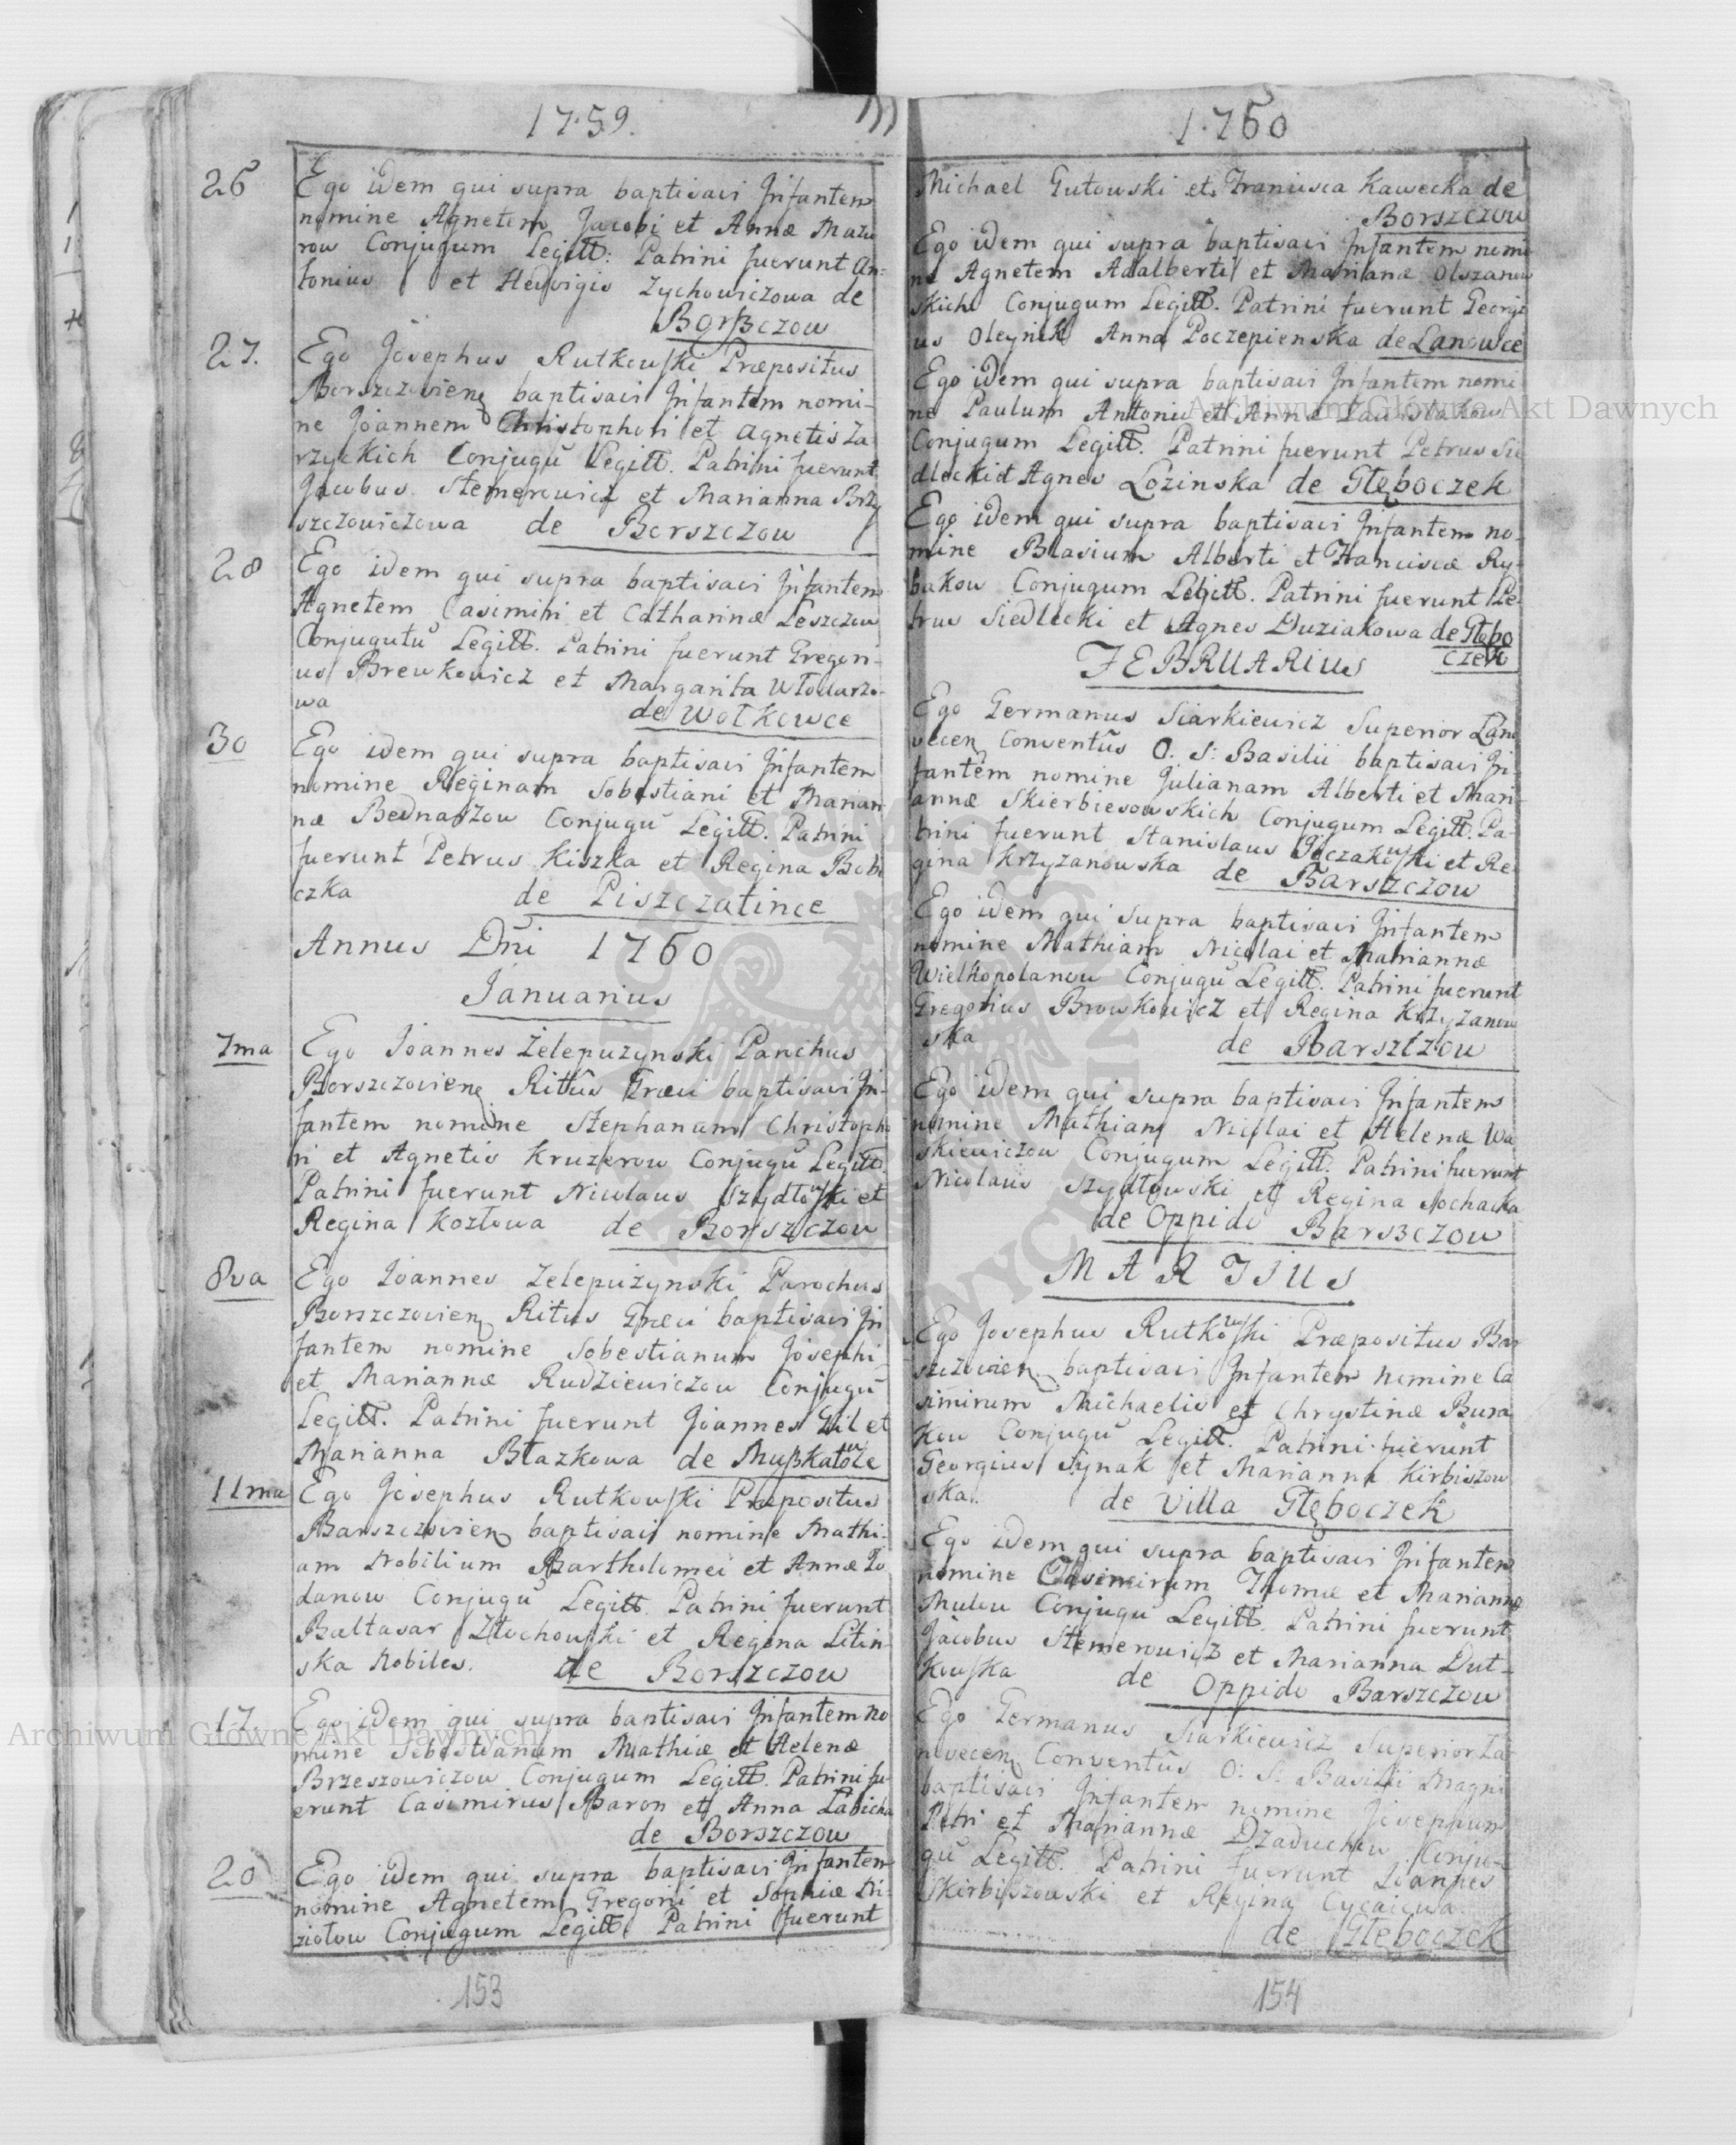 1759.
26
Ego idem qui supra baptisavi Infantem
nomine Agnetem Jacobi et Annæ Mazu
row Conjugum Legitt: Patrini fuerunt An-
tonius et Hedvigis Zychowiczowa de
Borszczow
27.
Ego Josephus Rutkowski Præpositus
Borszczovien baptisavi Infantem nomi-
ne Joannem Christophori et Agnetis Za
rzyckich Conjugū Legitt. Patrini fuerunt
Jacobus Stemerowicz et Marianna Brzy
szczowiczowa de Borszczow
28
Ego idem qui supra baptisavi Infantem
Agnetem Casimiri et Catharinæ Leszczow
Legitt. Patrini fuerunt Gregori-
us Brewkowicz et Margarita Włodarzo-
wa de Wołkowce
30
Ego idem qui supra baptisavi Infantem
nomine Reginam Sobestiani et Marian
næ Bednarzow Conjugū Legitt. Patrini
fuerunt Petrus Kiszka et Regina Bobi
czka de Piszczatince
Annus Dñi 1760
Januarius
7ma
Ego Joannes Zelepuzynski Parochus
Borszczovien Ritûs Græci baptisavi In-
fantem nomine Stephanam Christopho
ri et Agnetis Kruzerow Conjugū Legitt.
Patrini fuerunt Nicolaus Szydłowski et
Regina Kozłowa de Borszczow
8va
Ego Joannes Zelepuzynski Parochus
Borszczovien Ritus Græci baptisavi In
fantem nomine Sobestianum Josephi
et Mariannæ Rudziewiczow Conjugū
Legitt. Patrini fuerunt Joannes Gil et
Marianna Błazkowa de Mußkatowce
11ma
Ego Josephus Rutkowski Præpositus
Barszczovien baptisavi nomine Mathi-
am Nobilium Bartholomei et Annæ Jo
danow Conjugū Legitt. Patrini fuerunt
Baltasar Złochowski et Regina Litin-
ska Nobiles. de Borszczow
17
Ego idem qui supra baptisavi Infantem no
mine Sebestianum Mathiæ et Helenæ
Brzeszowiczow Conjugum Legitt. Patrini fu-
erunt Casimirus Baron et Anna Labicka
de Borszczow
20
Ego idem qui supra baptisavi Infantem
nomine Agnetem Gregorii et Sophiæ
Conjugum Legitt. Patrini fuerunt
153
1760
Michael Gutowski et Francisca Kawecka de
Borszczow
Ego idem qui supra baptisavi Infantem nomi
ne Agnetem Adalberti et Marianæ Olszanow
skich Conjugum Legitt. Patrini fuerunt Georgi
us Oleynik Anna Poczepienska de Lanowce
Ego idem qui supra baptisavi Infantem nomi
ne Paulum Antonii et Annæ
Conjugum Legitt. Patrini fuerunt Petrus Sie
dlecki et Agnes Lozinska de Głęboczek
Ego idem qui supra baptisavi Infantem no-
mine Blasium Alberti et Franciscæ Ry-
bakow Conjugum Legitt. Patrini fuerunt Pe-
trus Siedlecki et Agnes Duziakowa de Głębo
czek
FEBRUARIUS
Ego Germanus Siarkiewicz Superior Lano
vecen Conventûs O. S: Basilii baptisavi In-
fantem nomine Julianam Alberti et Mari-
annæ Skierbiesowskich Conjugum Legitt. Pa-
trini fuerunt Stanislaus et Re-
gina Krzyzanowska de Barszczow
Ego idem qui supra baptisavi Infantem
nomine Mathiam Nicolai et Mariannæ
Wielkopolanow Conjugū Legitt. Patrini fuerunt
Gregorius Browkowicz et Regina Krzyzanow
ska de Barszczow
Ego idem qui supra baptisavi Infantem
nomine Mathiam Nicolai et Helenæ Wa
skiewiczow Conjugum Legitt. Patrini fuerunt
Nicolaus Szydłowski et Regina Sochacka
de Oppido Barszczow
MARTIUS
Ego Josephus Rutkowski Præpositus Bar
szczovien baptisavi Infantem nomine Ca
simirum Michaelis et Chrystinæ Bura
kow Conjugū Legitt. Patrini fuerunt
Georgius Synak et Marianna Kirbiszow
ska. de Villa Głęboczek
Ego idem qui supra baptisavi Infantem
nomine Casimirum Thomæ et Mariannæ
Conjugū Legitt. Patrini fuerunt
Jacobus Stemerowicz et Marianna Dut-
kowska de Oppido Barszczow
Ego Germanus Siarkiewicz Superior La-
novecen Conventûs O: S: Basilii Magni
baptisavi Infantem nomine Josephum
Petri et Mariannæ Dzaduchow Conju-
gū Legitt. Patrini fuerunt Joannes
Skirbiszowski et Regina
de Głęboczek
154
Archiwum Główne Akt Dawnych
Archiwum Główne Akt Dawnych